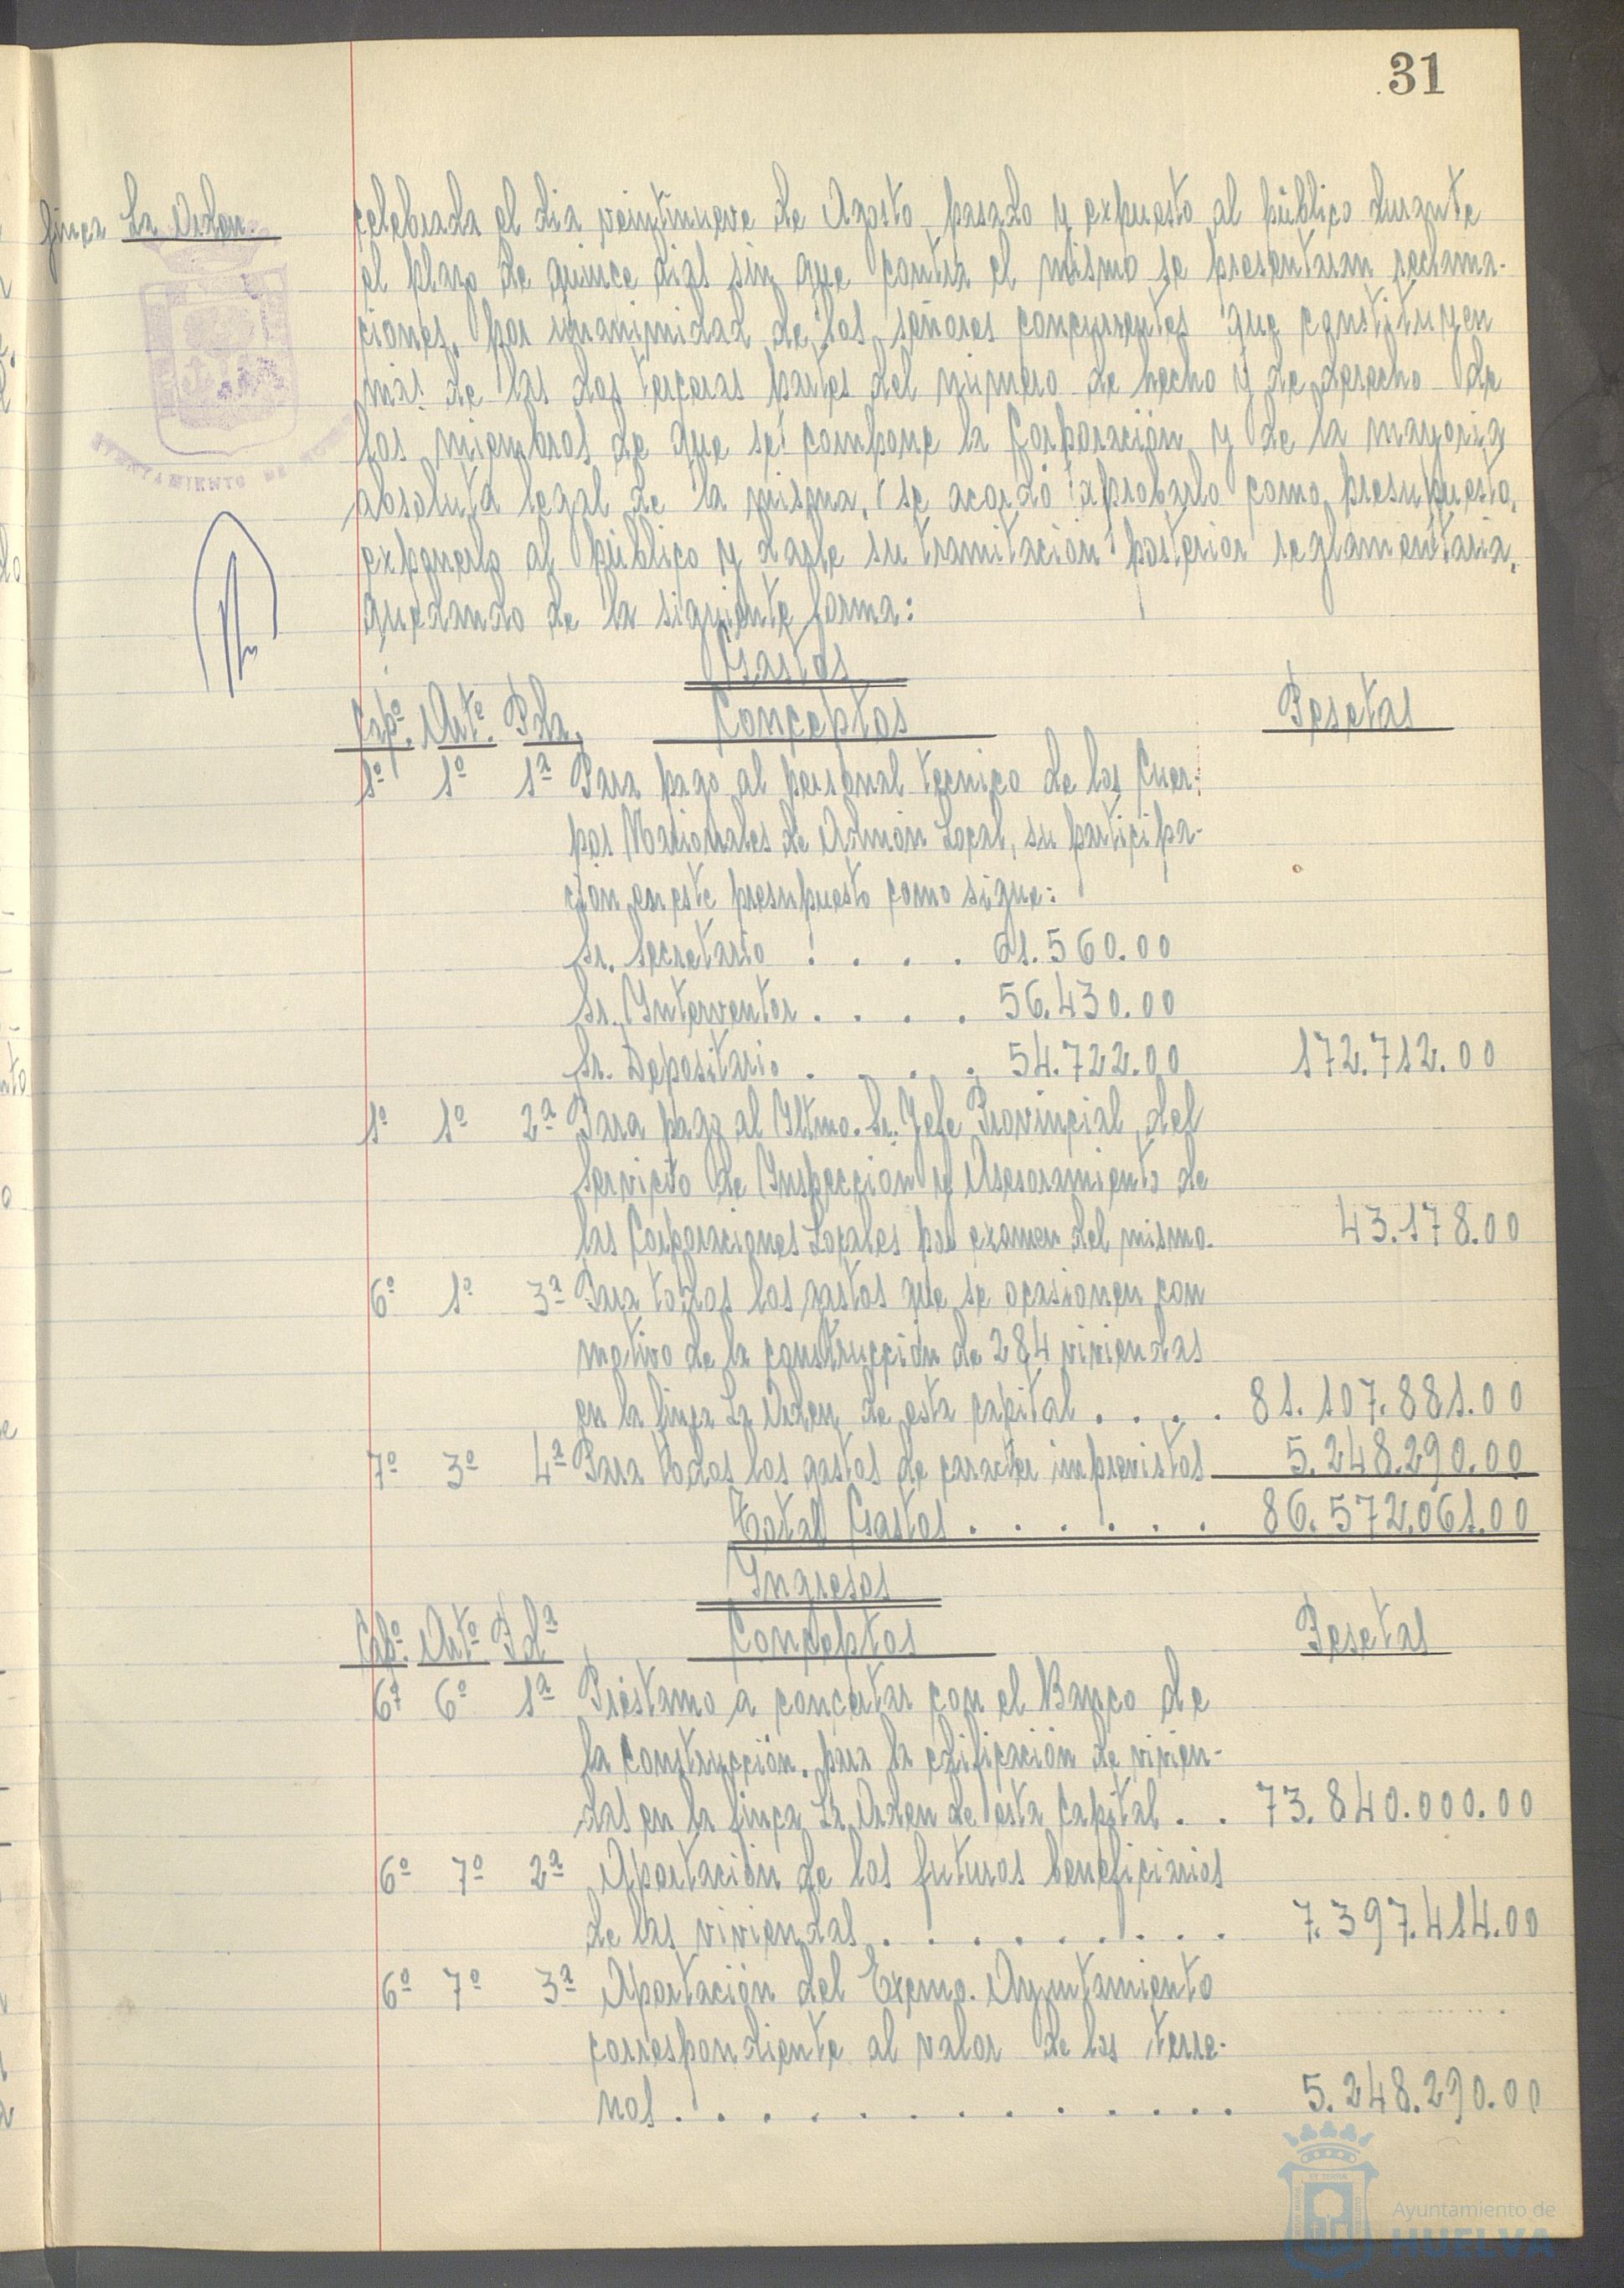 31
finca La Orden.
celebrada el dia veintinueve de Agosto pasado y expuesto al público durante
el plazo de quince dias sin que contra el mismo se presentaran reclama-
ciones, por unanimidad de los señores concurrentes que constituyen
más de las dos terceras partes del número de hecho y de derecho de
los miembros de que se compone la Corporación y de la mayoria
absoluta legal de la misma, se acordó aprobarlo como presupuesto,
exponerlo al público y darle su tramitación posterior reglamentaria,
quedando de la siguiente forma:
Gastos
Capº. Artº. Pda. Conceptos Pesetas
1º 1º 1ª Para pago al personal tecnico de los Cuer-
pos Nacionales de Admón Local, su participa-
ción en este presupuesto como sigue:
Sr. Secretario . . . . 61.560.00
Sr. Interventor . . . . 56.430.00
Sr. Depositario . . . . 54.722.00 172.712.00
1º 1º 2ª Para pago al Iltmo. Sr. Jefe Provincial del
Servicio de Inspección y Asesoramiento de
las Corporaciones Locales por examen del mismo. 43.178.00
6º 1º 3ª Para todos los gastos que se ocasionen con
motivo de la construcción de 284 viviendas
en la finca La Orden de esta capital . . . . 81.107.881.00
7º 3º 4ª Para todos los gastos de caracter imprevistos 5.248.290.00
Total Gastos . . . . . . 86.572.061.00
Ingresos
Capº. Artº Pdª Conceptos Pesetas
6º 6º 1ª Préstamo a concertar con el Banco de
la Construcción, para la edificación de vivien-
das en la finca La Orden de esta Capital . . 73.840.000.00
6º 7º 2ª Aportación de los futuros beneficiarios
de las viviendas . . . . . . . . 7.397.414.00
6º 7º 3ª Aportación del Excmo. Ayuntamiento
correspondiente al valor de los terre-
nos . . . . . . . . . . . . 5.248.290.00
AYUNTAMIENTO DE
Ayuntamiento de
HUELVA